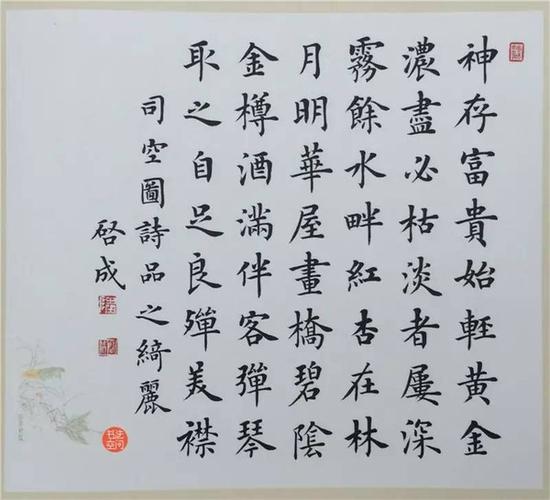 神存富貴始輕黄金
濃盡必枯淡者屢深
霧餘水畔紅杏在林
月明華屋畫橋碧陰
金樽酒滿伴客彈琴
取之自足良殫美襟
司空圖詩品之綺麗
啓成